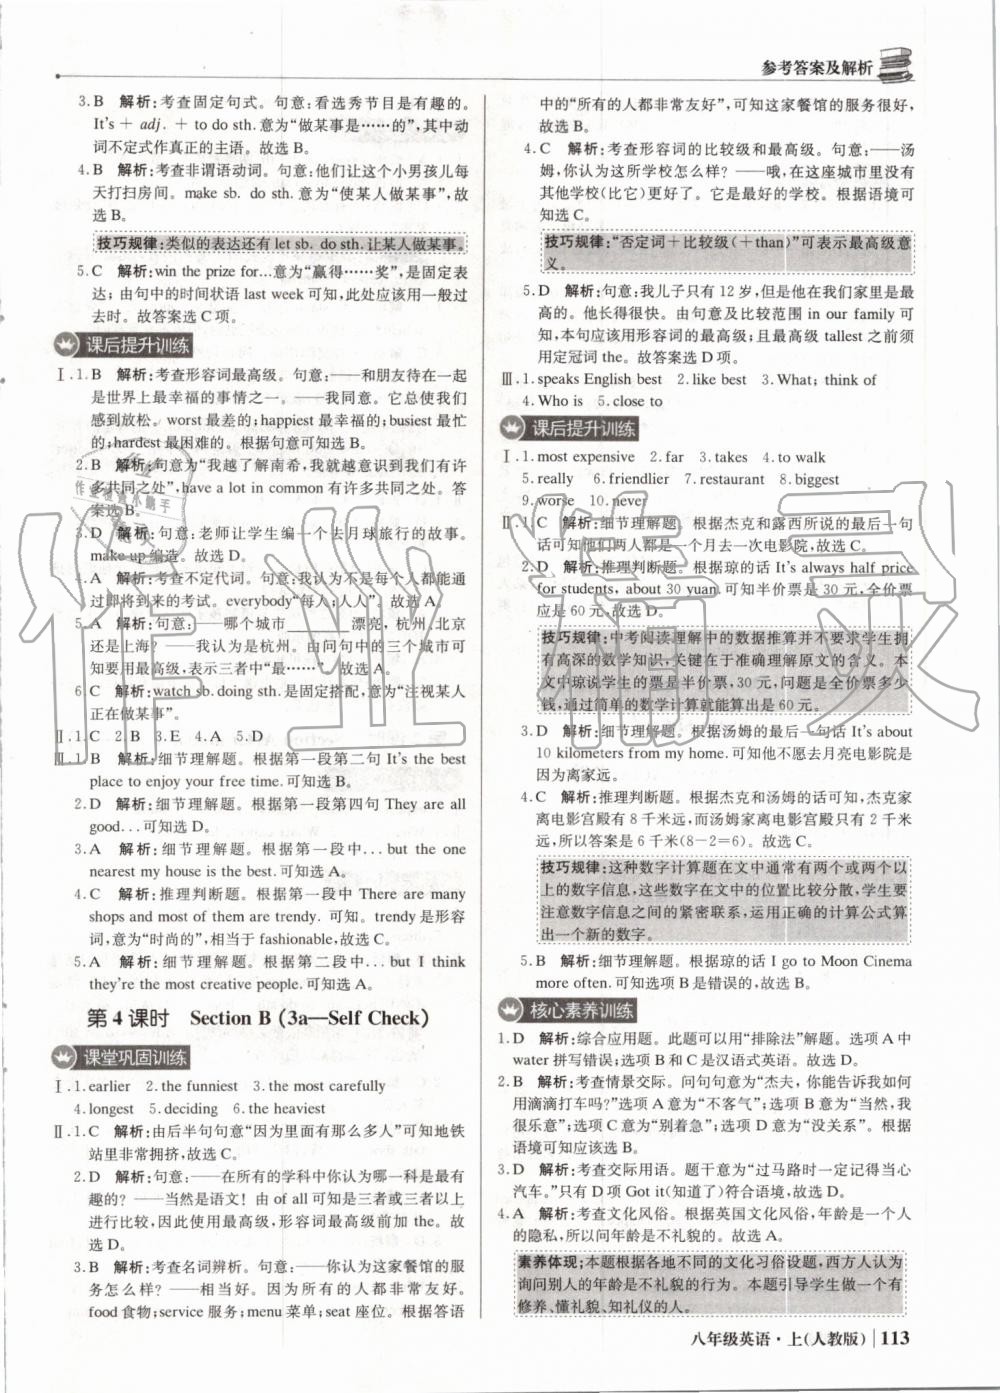 参考答案及解析
3. B　解析:考查固定句式。句意:看选秀节目是有趣的。
It's + adj. + to do sth. 意为“做某事是……的”,其中动
词不定式作真正的主语。故选 B。
4. B　解析:考查非谓语动词。句意:他们让这个小男孩儿每
天打扫房间。make sb. do sth. 意为“使某人做某事”,故
选 B。
技巧规律:类似的表达还有 let sb. do sth. 让某人做某事。
5. C　解析:win the prize for…意为“赢得……奖”,是固定表
达;由句中的时间状语 last week 可知,此处应该用一般过
去时。故答案选 C 项。
课后提升训练
Ⅰ. 1. B　解析:考查形容词最高级。句意:——和朋友待在一起
是世界上最幸福的事情之一。——我同意。它总使我们
感到放松。worst 最差的;happiest 最幸福的;busiest 最忙
的;hardest 最困难的。根据句意可知选 B。
2. B　解析:句意为“我越了解南希,我就意识到我们有许
多共同之处”,have a lot in common 有许多共同之处。答
案选 B。
3. D　解析:句意:老师让学生编一个去月球旅行的故事。
make up 编造。故选 D。
4. A　解析:考查不定代词。句意:我认为不是每个人都能通
过即将到来的考试。everybody“每人;人人”。故选 A。
5. A　解析:句意:——哪个城市________漂亮,杭州,北京
还是上海?——我认为是杭州。由问句中的三个城市可
知要用最高级,表示三者中“最……”。故选 A。
6. C　解析:watch sb. doing sth. 是固定搭配,意为“注视某人
正在做某事”。
Ⅱ. 1. C　2. B　3. E　4. A　5. D
Ⅲ. 1. B　解析:细节理解题。根据第一段第二句 It's the best
place to enjoy your free time. 可知选 B。
2. D　解析:细节理解题。根据第一段第四句 They are all
good…可知选 D。
3. A　解析:细节理解题。根据第一段中…but the one
nearest my house is the best. 可知选 A。
4. C　解析:推理判断题。根据第一段中 There are many
shops and most of them are trendy. 可知。trendy 是形容
词,意为“时尚的”,相当于 fashionable,故选 C。
5. A　解析:细节理解题。根据第二段中…but I think
they're the most creative people. 可知选 A。
第 4 课时　Section B (3a—Self Check)
课堂巩固训练
Ⅰ. 1. earlier　2. the funniest　3. the most carefully
4. longest　5. deciding　6. the heaviest
Ⅱ. 1. C　解析:由后半句句意“因为里面有那么多人”可知地铁
站里非常拥挤,故选 C。
2. D　解析:句意:——在所有的学科中你认为哪一科是最有
趣的?——当然是语文!由 of all 可知是三者或三者以上
进行比较,因此使用最高级,形容词最高级前加 the。故
选 D。
3. B　解析:考查名词辨析。句意:——你认为这家餐馆的服务
怎么样?——相当好。因为所有的人都非常友好。
food 食物;service 服务;menu 菜单;seat 座位。根据答语
中的“所有的人都非常友好”,可知这家餐馆的服务很好,
故选 B。
4. C　解析:考查形容词的比较级和最高级。句意:——汤
姆,你认为这所学校怎么样?——哦,在这座城市里没有
其他学校(比它)更好了。它是最好的学校。根据语境可
知选 C。
技巧规律:“否定词＋比较级(＋than)”可表示最高级意
义。
5. D　解析:句意:我儿子只有 12 岁,但他在我们家里是最
高的。他长得很快。由句意及比较范围 in our family 可
知,本句应该用形容词的最高级;且最高级 tallest 之前须
用定冠词 the。故答案选 D 项。
Ⅲ. 1. speaks English best　2. like best　3. What; think of
4. Who is　5. close to
课后提升训练
Ⅰ. 1. most expensive　2. far　3. takes　4. to walk
5. really　6. friendlier　7. restaurant　8. biggest
9. worse　10. never
Ⅱ. 1. C　解析:细节理解题。根据杰克和露西所说的最后一句
话可知他们两人都是一个月去一次电影院,故选 C。
2. D　解析:推理判断题。根据琼的话 It's always half price
for students, about 30 yuan. 可知半价票是 30 元,全价票
应是 60 元。故选 D。
技巧规律:中考阅读理解中的数据推算并不要求学生拥
有高深的数学知识,关键在于准确理解原文的含义。本
文中琼说学生的票是半价票,30 元,问题是全价票多少
钱,通过简单的数学计算就能算出是 60 元。
3. D　解析:细节理解题。根据汤姆的最后一句话 It's about
10 kilometers from my home. 可知他不愿去月亮电影院是
因为离家远。
4. C　解析:推理判断题。根据杰克和汤姆的话可知,杰克家
离电影宫殿有 8 千米远,而汤姆家离电影宫殿只有 2 千米
远,所以答案是 6 千米(8－2＝6)。故选 C。
技巧规律:这种数字计算题在文中通常有两个或两个以
上的数字信息,这些数字在文中的位置比较分散,学生要
注意数字信息之间的紧密联系,运用正确的计算公式算
出一个新的数字。
5. B　解析:细节理解题。根据琼的话 I go to Moon Cinema
more often. 可知选项 B 是错误的,故选 B。
核心素养训练
1. D　解析:综合应用题。此题可以用“排除法”解题。选项 A 中
water 拼写错误;选项 B 和 C 是汉语式英语。故选 D。
2. B　解析:考查情景交际。问句句意为“杰夫,你能告诉我如何
用滴滴打车吗?”选项 A 意为“不客气”;选项 B 意为“当然,我
很乐意”;选项 C 意为“别着急”;选项 D 意为“没关系”。根据
语境可知应该选 B。
3. D　解析:考查交际用语。题干意为“过马路时一定记得当心
汽车。”只有 D 项 Got it(知道了)符合语境,故选 D。
4. A　解析:考查文化风俗。根据英国文化风俗,年龄是一个人
的隐私,所以问年龄是不礼貌的。故选 A。
素养体现:本题根据各地不同的文化习俗设题,西方人认为
询问别人的年龄是不礼貌的行为。本题引导学生做一个有
修养、懂礼貌、知礼仪的人。
八年级英语·上(人教版)　113
作业精灵